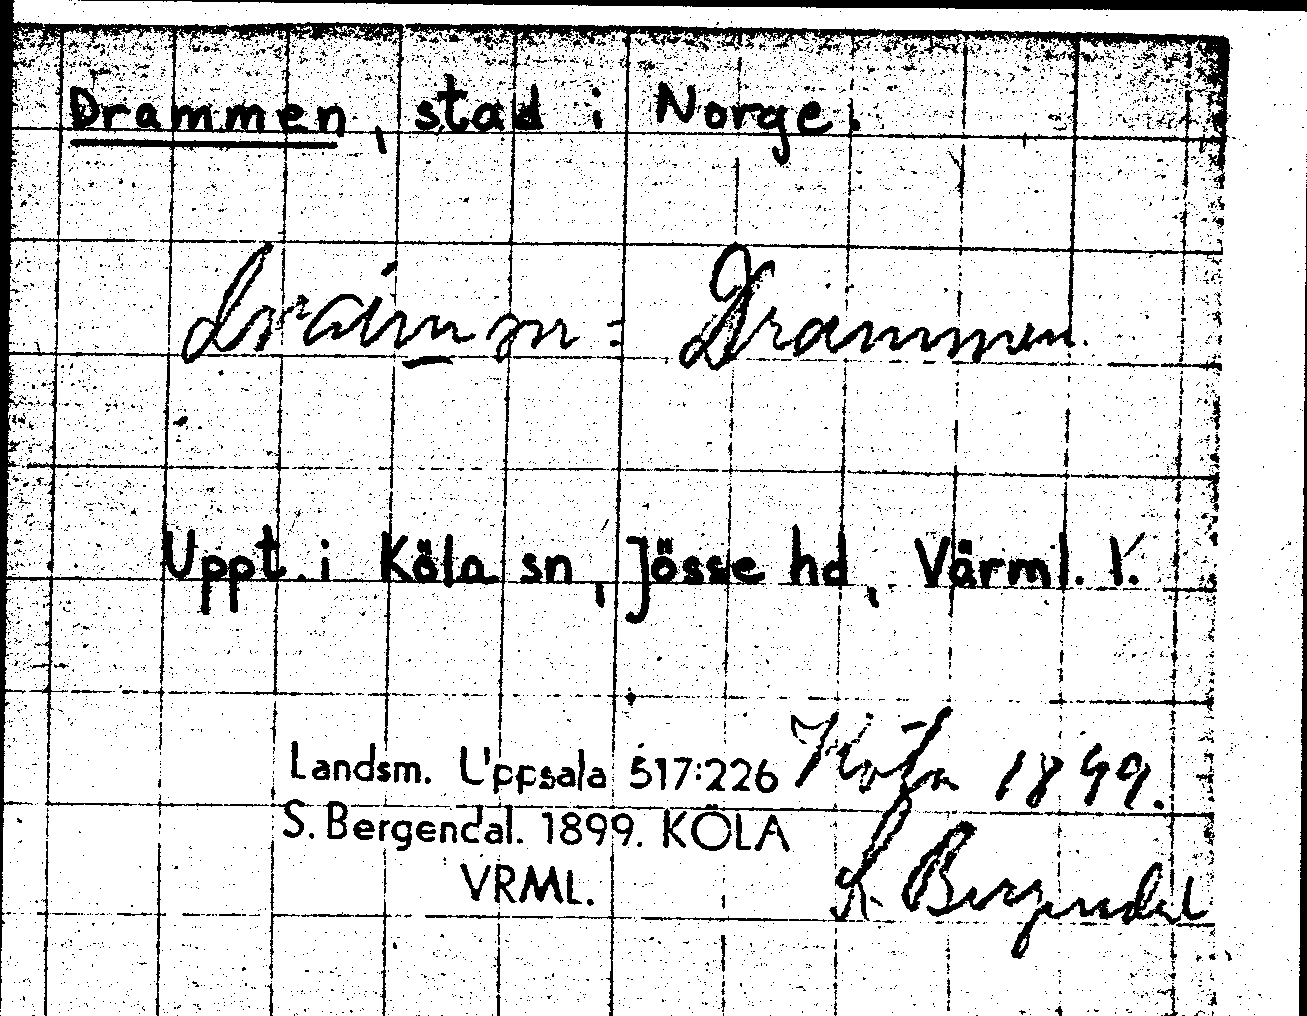 Drammen, stad i Norge.
= Drammen.
Uppt. i Köla sn, Jösse hd, Värml. l.
Landsm. Uppsala 517:226 Köla 1899.
S. Bergendal. 1899. KÖLA
VRML.
S Bergendal